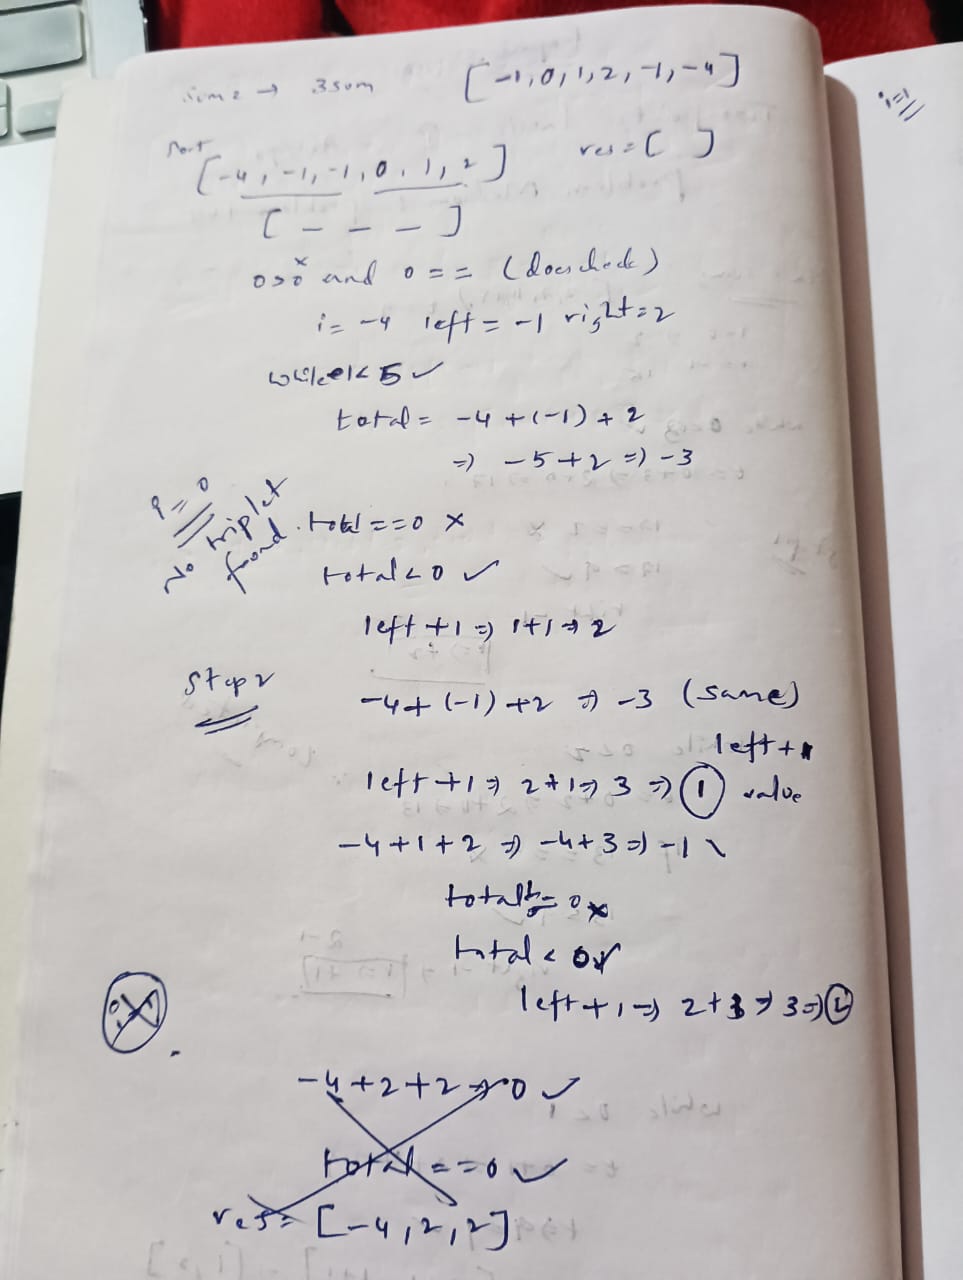 3sum [-1,0,1,2,-1,-4]
sort [-4,-1,-1,0,1,2] res=[ ]
[ _ _ _ ]
0>0 x and 0 == (does check)
i= -4 left = -1 right=2
while 1<5 ✓
total = -4 +(-1) + 2
=> -5+2 => -3
i=0
No triplet found
total ==0 x
total<0 ✓
left +1 => 1+1 => 2
Step 2
-4+(-1)+2 => -3 (same)
left +1 => 2+1 => 3 => 1 value
-4+1+2 => -4+3 => -1
total == 0 x
total < 0 ✓
left+1 => 2+1 => 3 => 2
-4+2+2 => 0 ✓
total ==0 ✓
res= [-4,2,2]
i=1